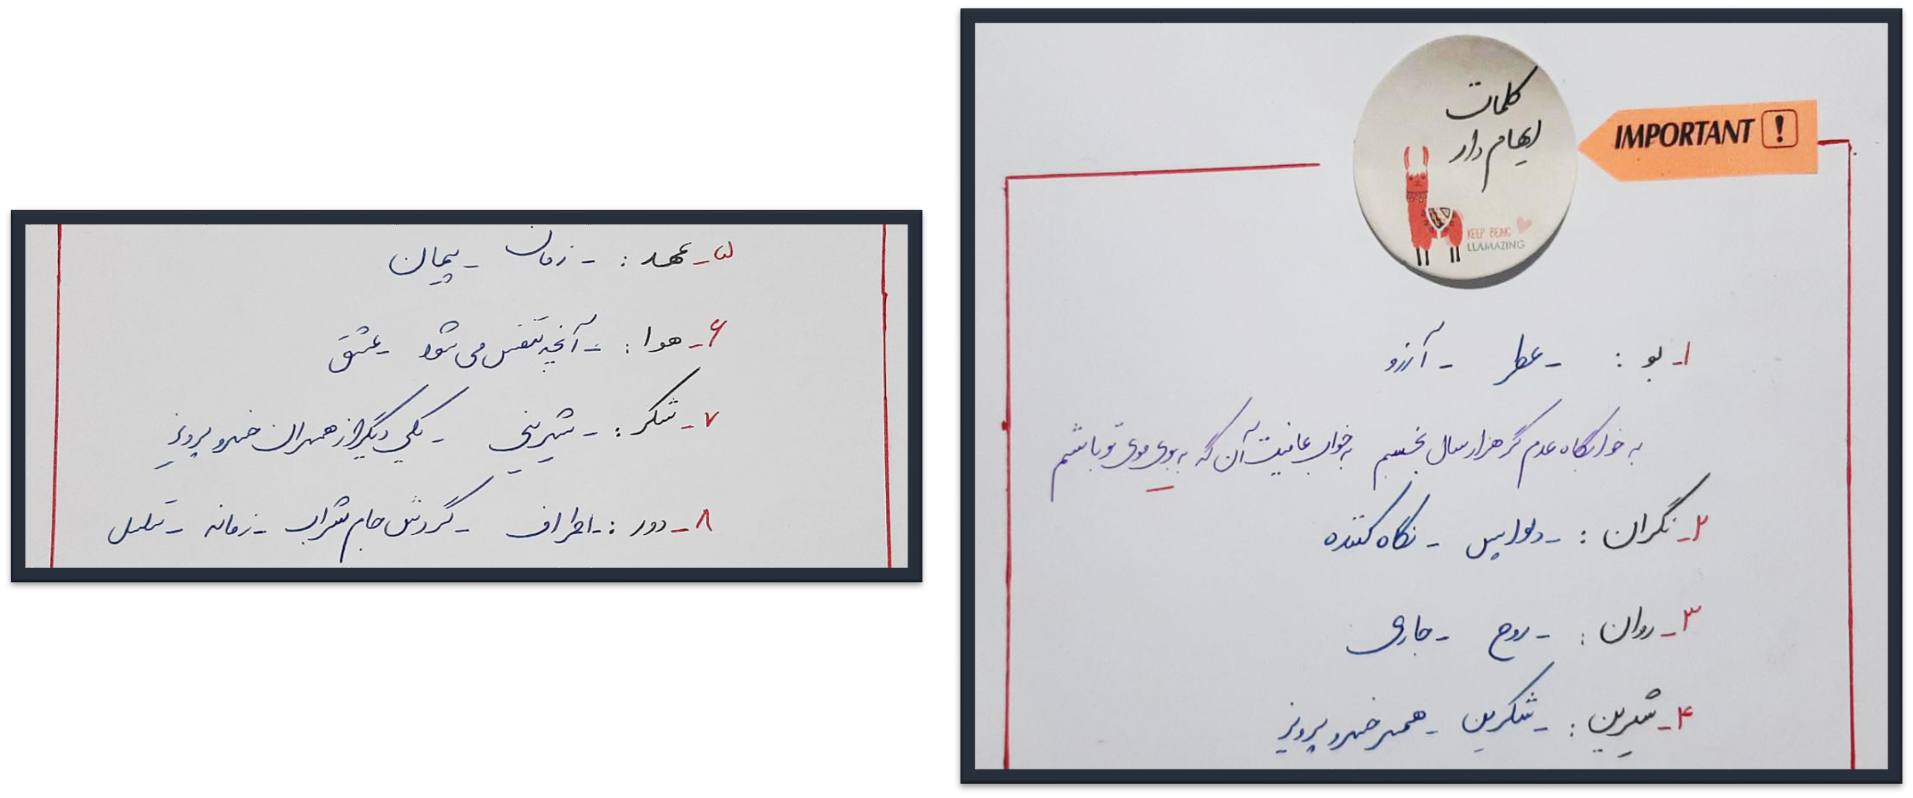 کلمات
ایهام دار
IMPORTANT !
KEEP BEING
LLAMAZING
۱- بو : - عطر - آرزو
به خوابگاه عدم گر هزار سال بخسبم به خواب عافیت آن گه به بوی موی تو باشم
۲- نگران : - دلواپس - نگاه کننده
۳- روان : - روح - جاری
۴- شیرین : - شکرین - همسر خسرو پرویز
۵- عهد : - زمان - پیمان
۶- هوا : - آنچه تنفس می شود - عشق
۷- شکر : - شیرینی - یکی دیگر از همسران خسرو پرویز
۸- دور : - اطراف - گردش جام شراب - زمانه - تسلسل